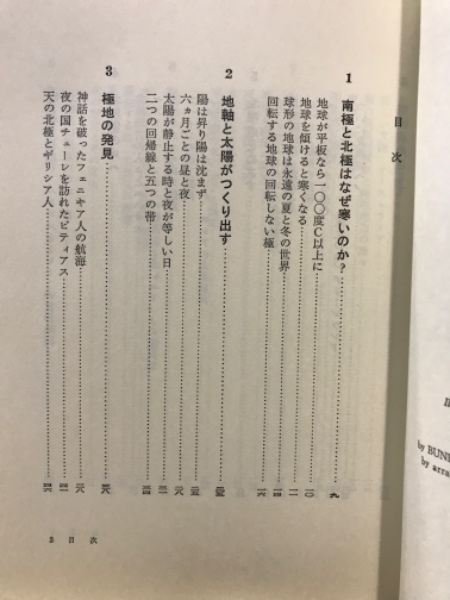 目次
1 南極と北極はなぜ寒いのか？……九
地球が平板なら一〇〇度C以上に
地球を傾けると寒くなる……一〇
球形の地球は永遠の夏と冬の世界
回転する地球の回転しない極……一六
2 地軸と太陽がつくり出す
陽は昇り陽は沈まず
六ヵ月ごとの昼と夜
太陽が静止する時と夜が等しい日
二つの回帰線と五つの帯
3 極地の発見
神話を破ったフェニキア人の航海
夜の国チューレを訪れたピティアス
天の北極とギリシア人
3 目次
by BUN
by arra